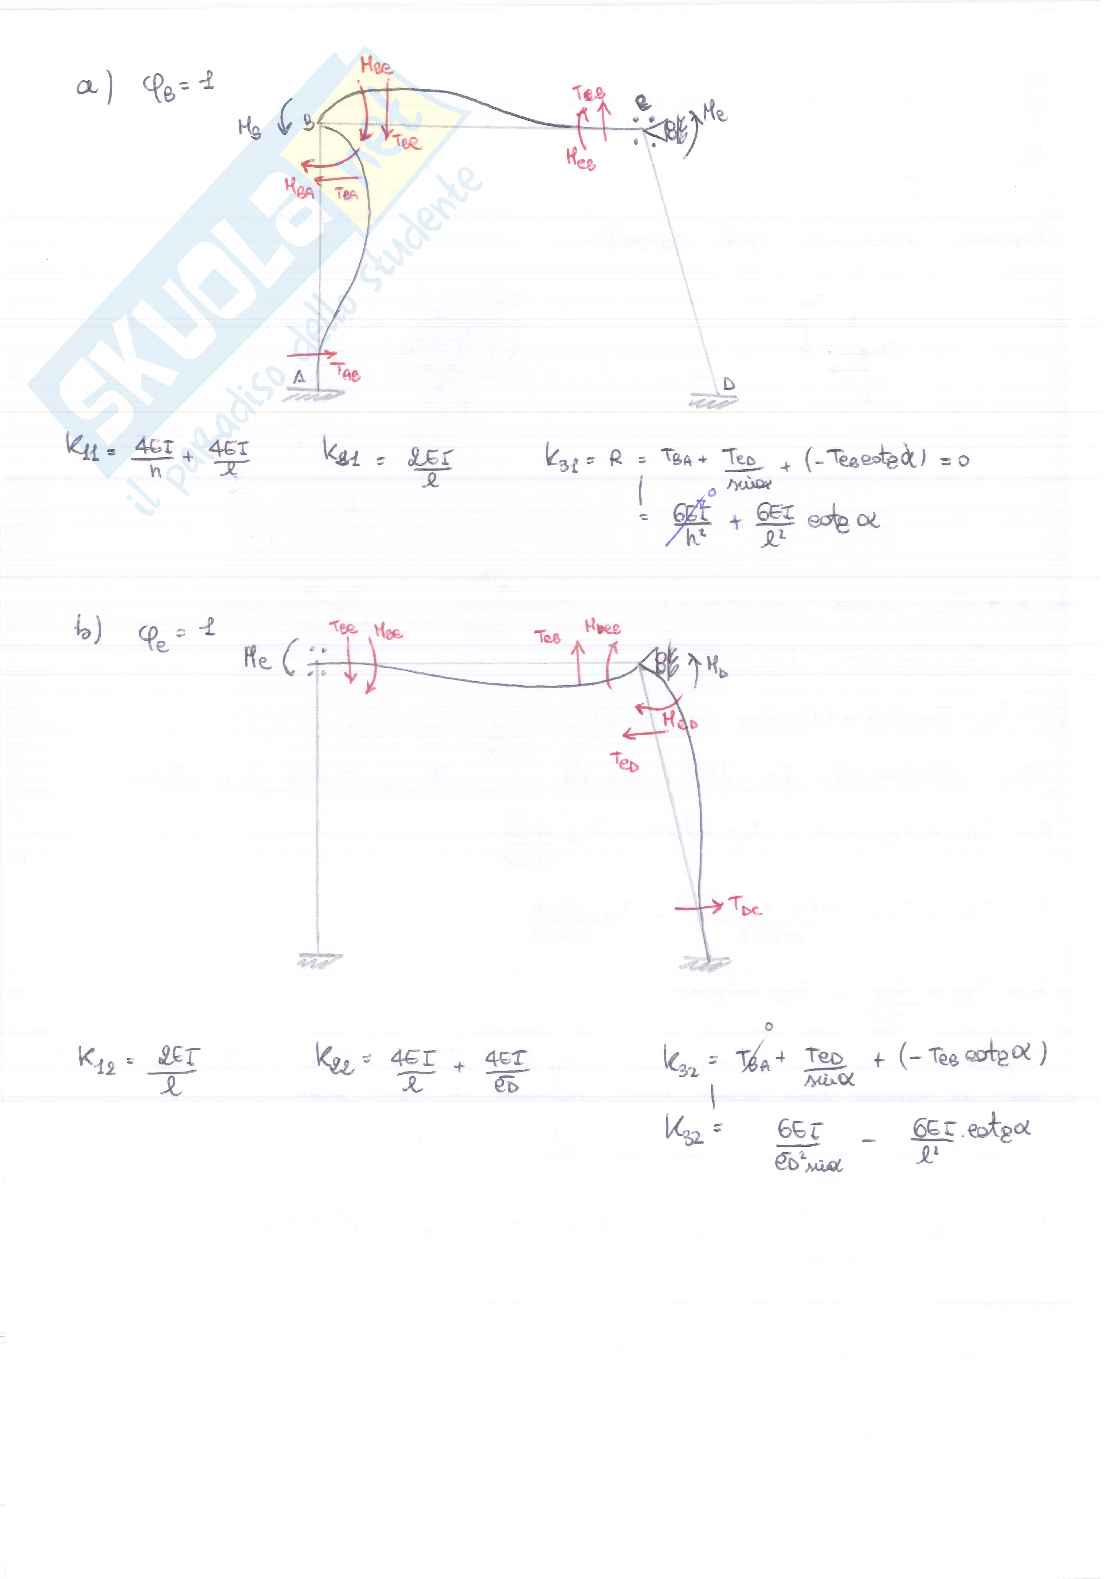 a) φB = 1
MBC
MB
B
TBC
TCB
C
MC
MCB
MBA
TBA
TAB
A
D
SKUOLA.net
il paradiso dello studente
K11 = 4EI/h + 4EI/l K21 = 2EI/l K31 = R = TBA + TCD/sinα + (-TCB cotg α) = 0
= 6EI/h² 0 + 6EI/l² cotg α
b) φC = 1
TBC
MBC
TCB
MC
MD
MCD
TCD
TDC
K12 = 2EI/l K22 = 4EI/l + 4EI/CD K32 = TBA 0 + TCD/sinα + (-TCB cotg α)
K32 = 6EI/CD² sinα - 6EI/l² · cotg α